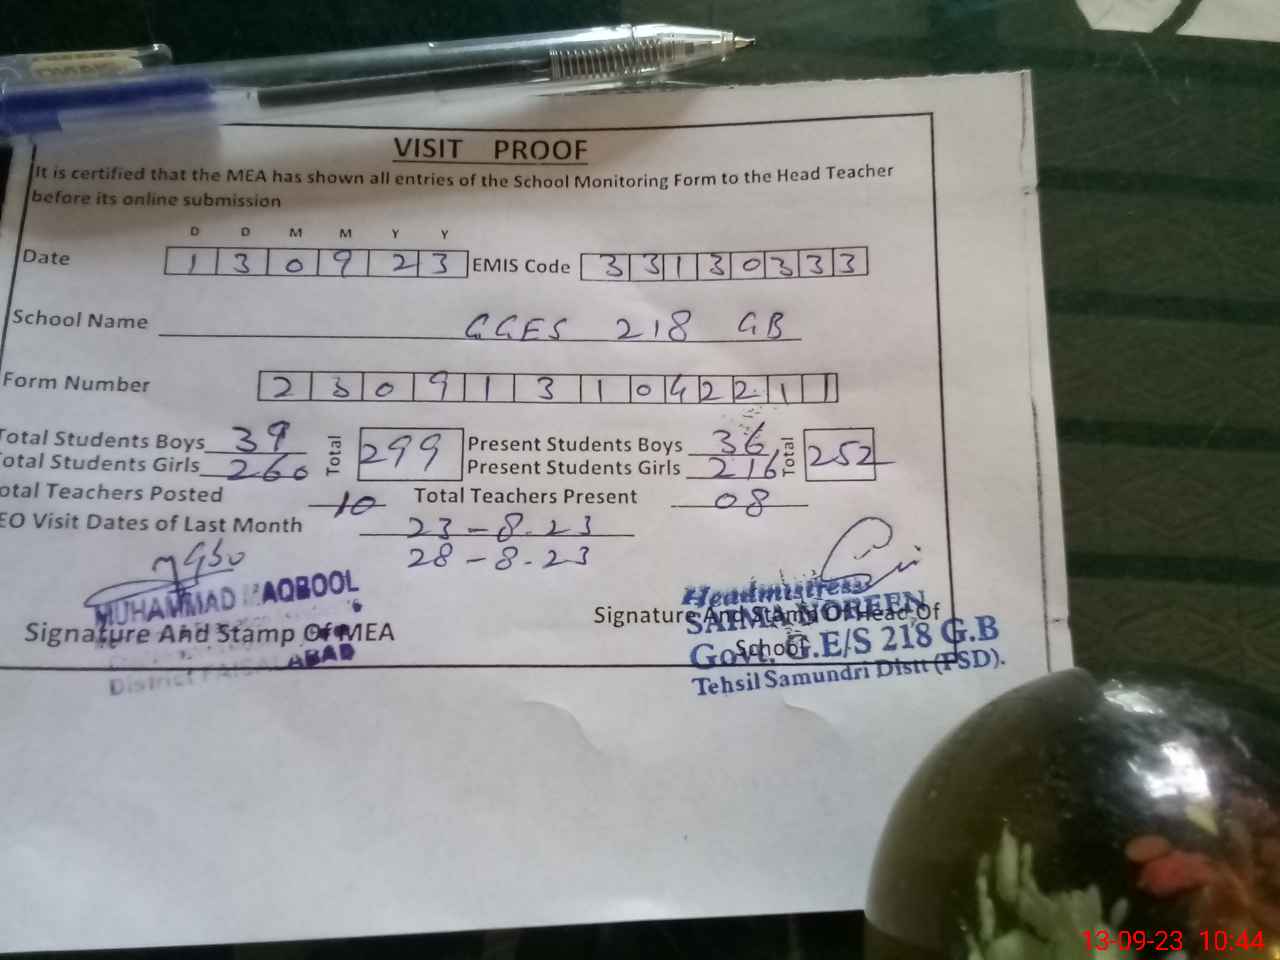 VISIT PROOF
It is certified that the MEA has shown all entries of the School Monitoring Form to the Head Teacher
before its online submission
D D M M Y Y
Date 1 3 0 9 2 3 EMIS Code 3 3 1 3 0 3 3 3
School Name GGES 218 GB
Form Number 2 3 0 9 1 3 1 0 4 2 2 1 1
Total Students Boys 39 Total 299 Present Students Boys 36 Total 252
Total Students Girls 260 Present Students Girls 216
otal Teachers Posted 10 Total Teachers Present 08
EO Visit Dates of Last Month 23-8-23
28-8-23
MUHAMMAD MAQBOOL
Signature And Stamp Of MEA
District FAISALABAD
Headmistress
Signature And Stamp Of Head Of
SAIMA NOREEN
School
Govt. G.E/S 218 G.B
Tehsil Samundri Distt (FSD).
13-09-23 10:44